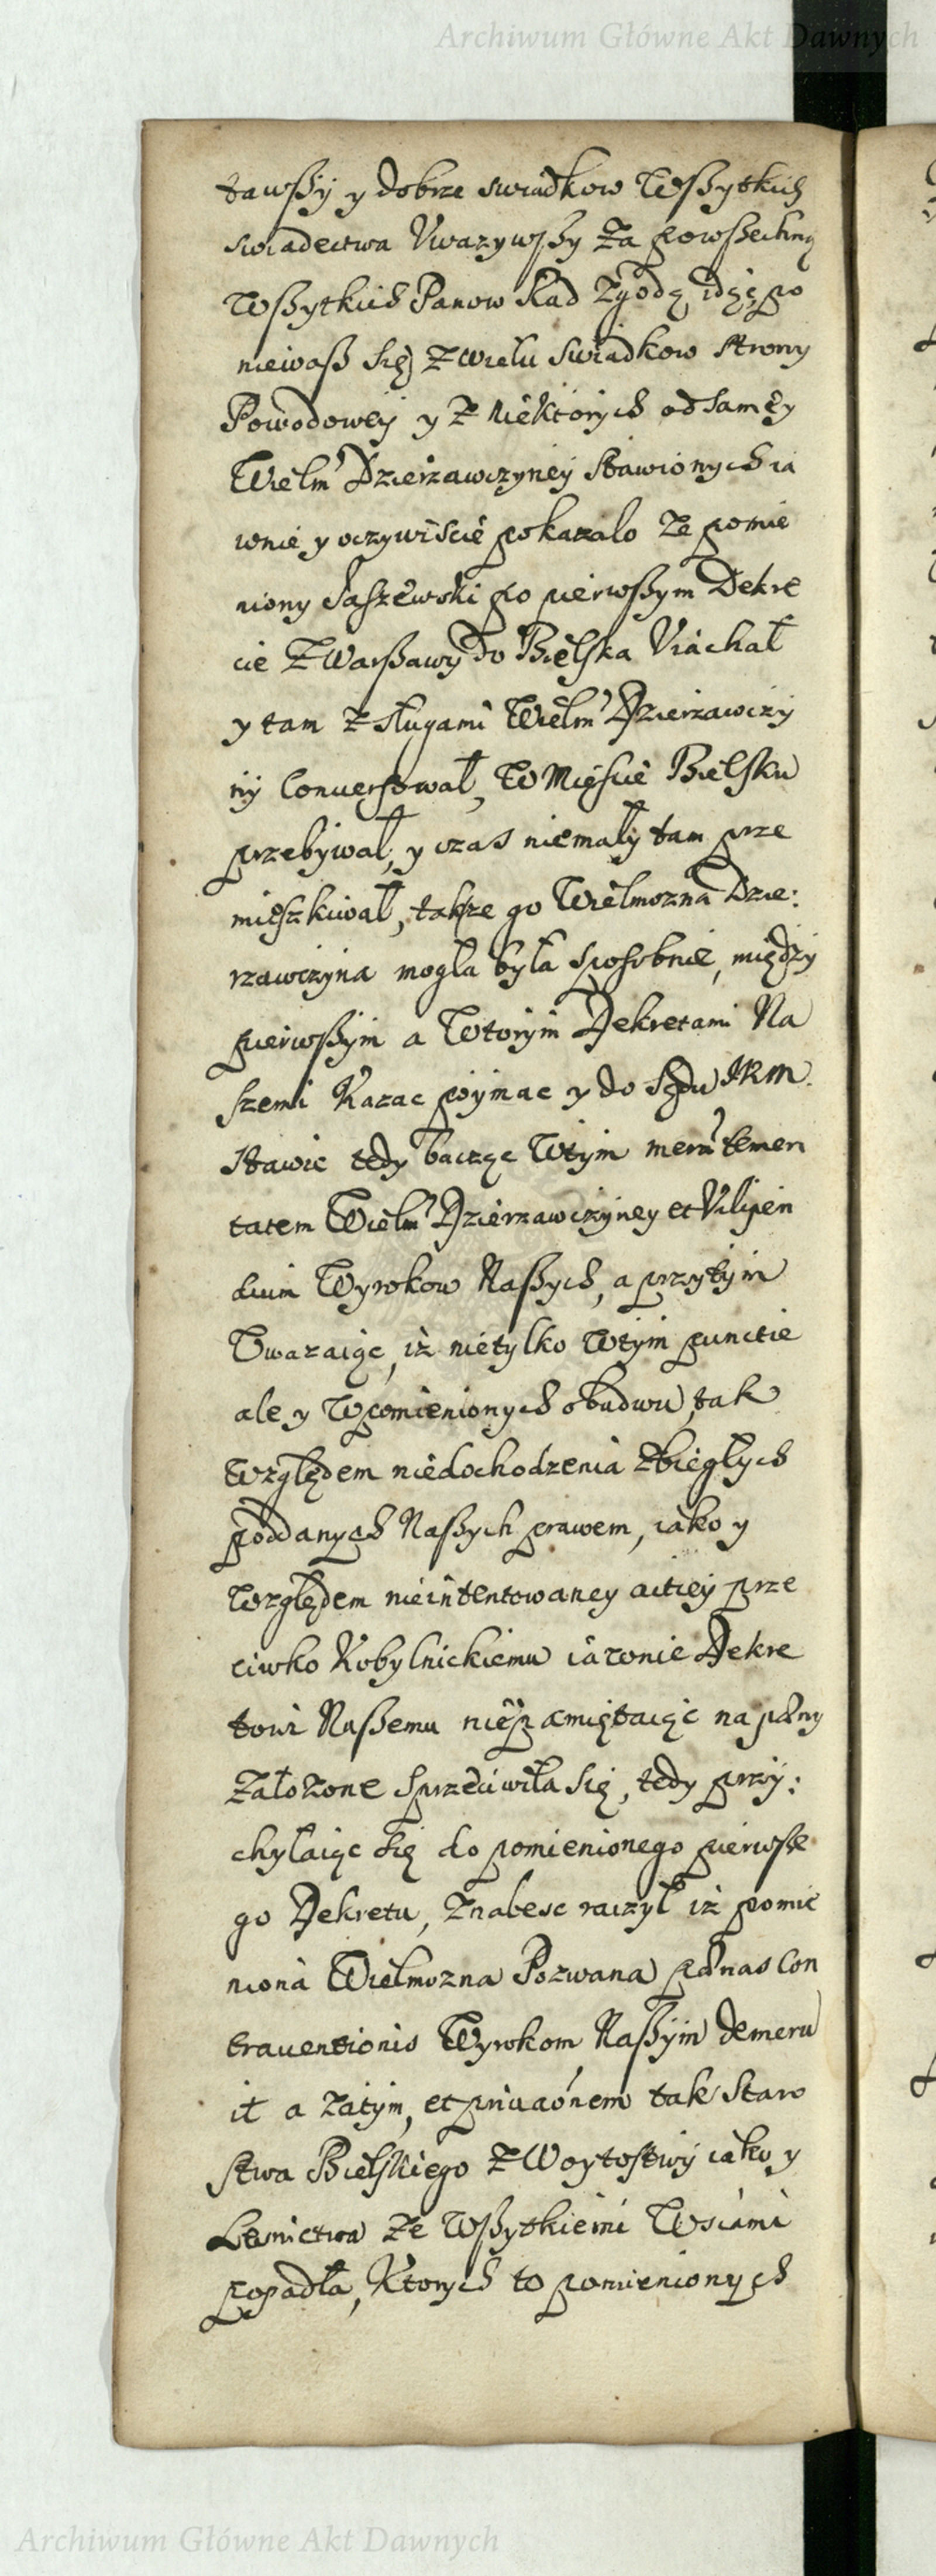 Archiwum Główne Akt Dawnych
tawßy y dobrze swiadkow Wßytkich
swiadectwa Vwazywßy Za powßechną
Wßytkich Panow Rad Zgodą idąc, po
niewaß się z wielu Swiadkow strony
Powodowey y z niektorych od samey
Wielm Dzierzawczyney stawionych ia
wnie y oczywiscie pokazalo ze pomie
niony Saszewski po pierwßym Dekre
cie z Warßawy do Bielska Viachał
y tam z sługami Wielm Dzierzawczy
ny Conuersował, W Miescie Bielsku
przebywał, y czas niemały tam prze
mieszkiwał, takze go Wielmozna Dzie:
rzawczyna mogła była sposobnie, między
pierwßym a Wtorym Dekretami Na
szemi Kazac poymac y do Sądu JKM
stawic tedy bacząc W tym meram temeri
tatem Wielm Dzierzawczyney et Vilipen
dium Wyrokow Naßych, a przytym
Vwazaiąc, iz nietylko W tym punctie
ale y W pomienionych obudwu, tak
Względem niedochodzenia zbiegłych
poddanych Naßych prawem, iako y
Względem nieintentowaney actiey prze
ciwko Kobylnickiemu iawnie Dekre
towi Naßemu niepamiętaiąc na pany
załozone sprzeciwiła się, tedy przy:
chylaiąc się do pomienionego pierwße
go Dekretu, Znalesc raczył iz pomie
niona Wielmozna Pozwana pænas Con
trauentionis Wyrokom Naßym demeru
it a zatym, et priuaonem tak Staro
stwa Bielskiego z Woytostwy iako y
Lesnictwa ze Wßytkiemi Wsiami
popadła, Ktorych to pomienionych
Archiwum Główne Akt Dawnych